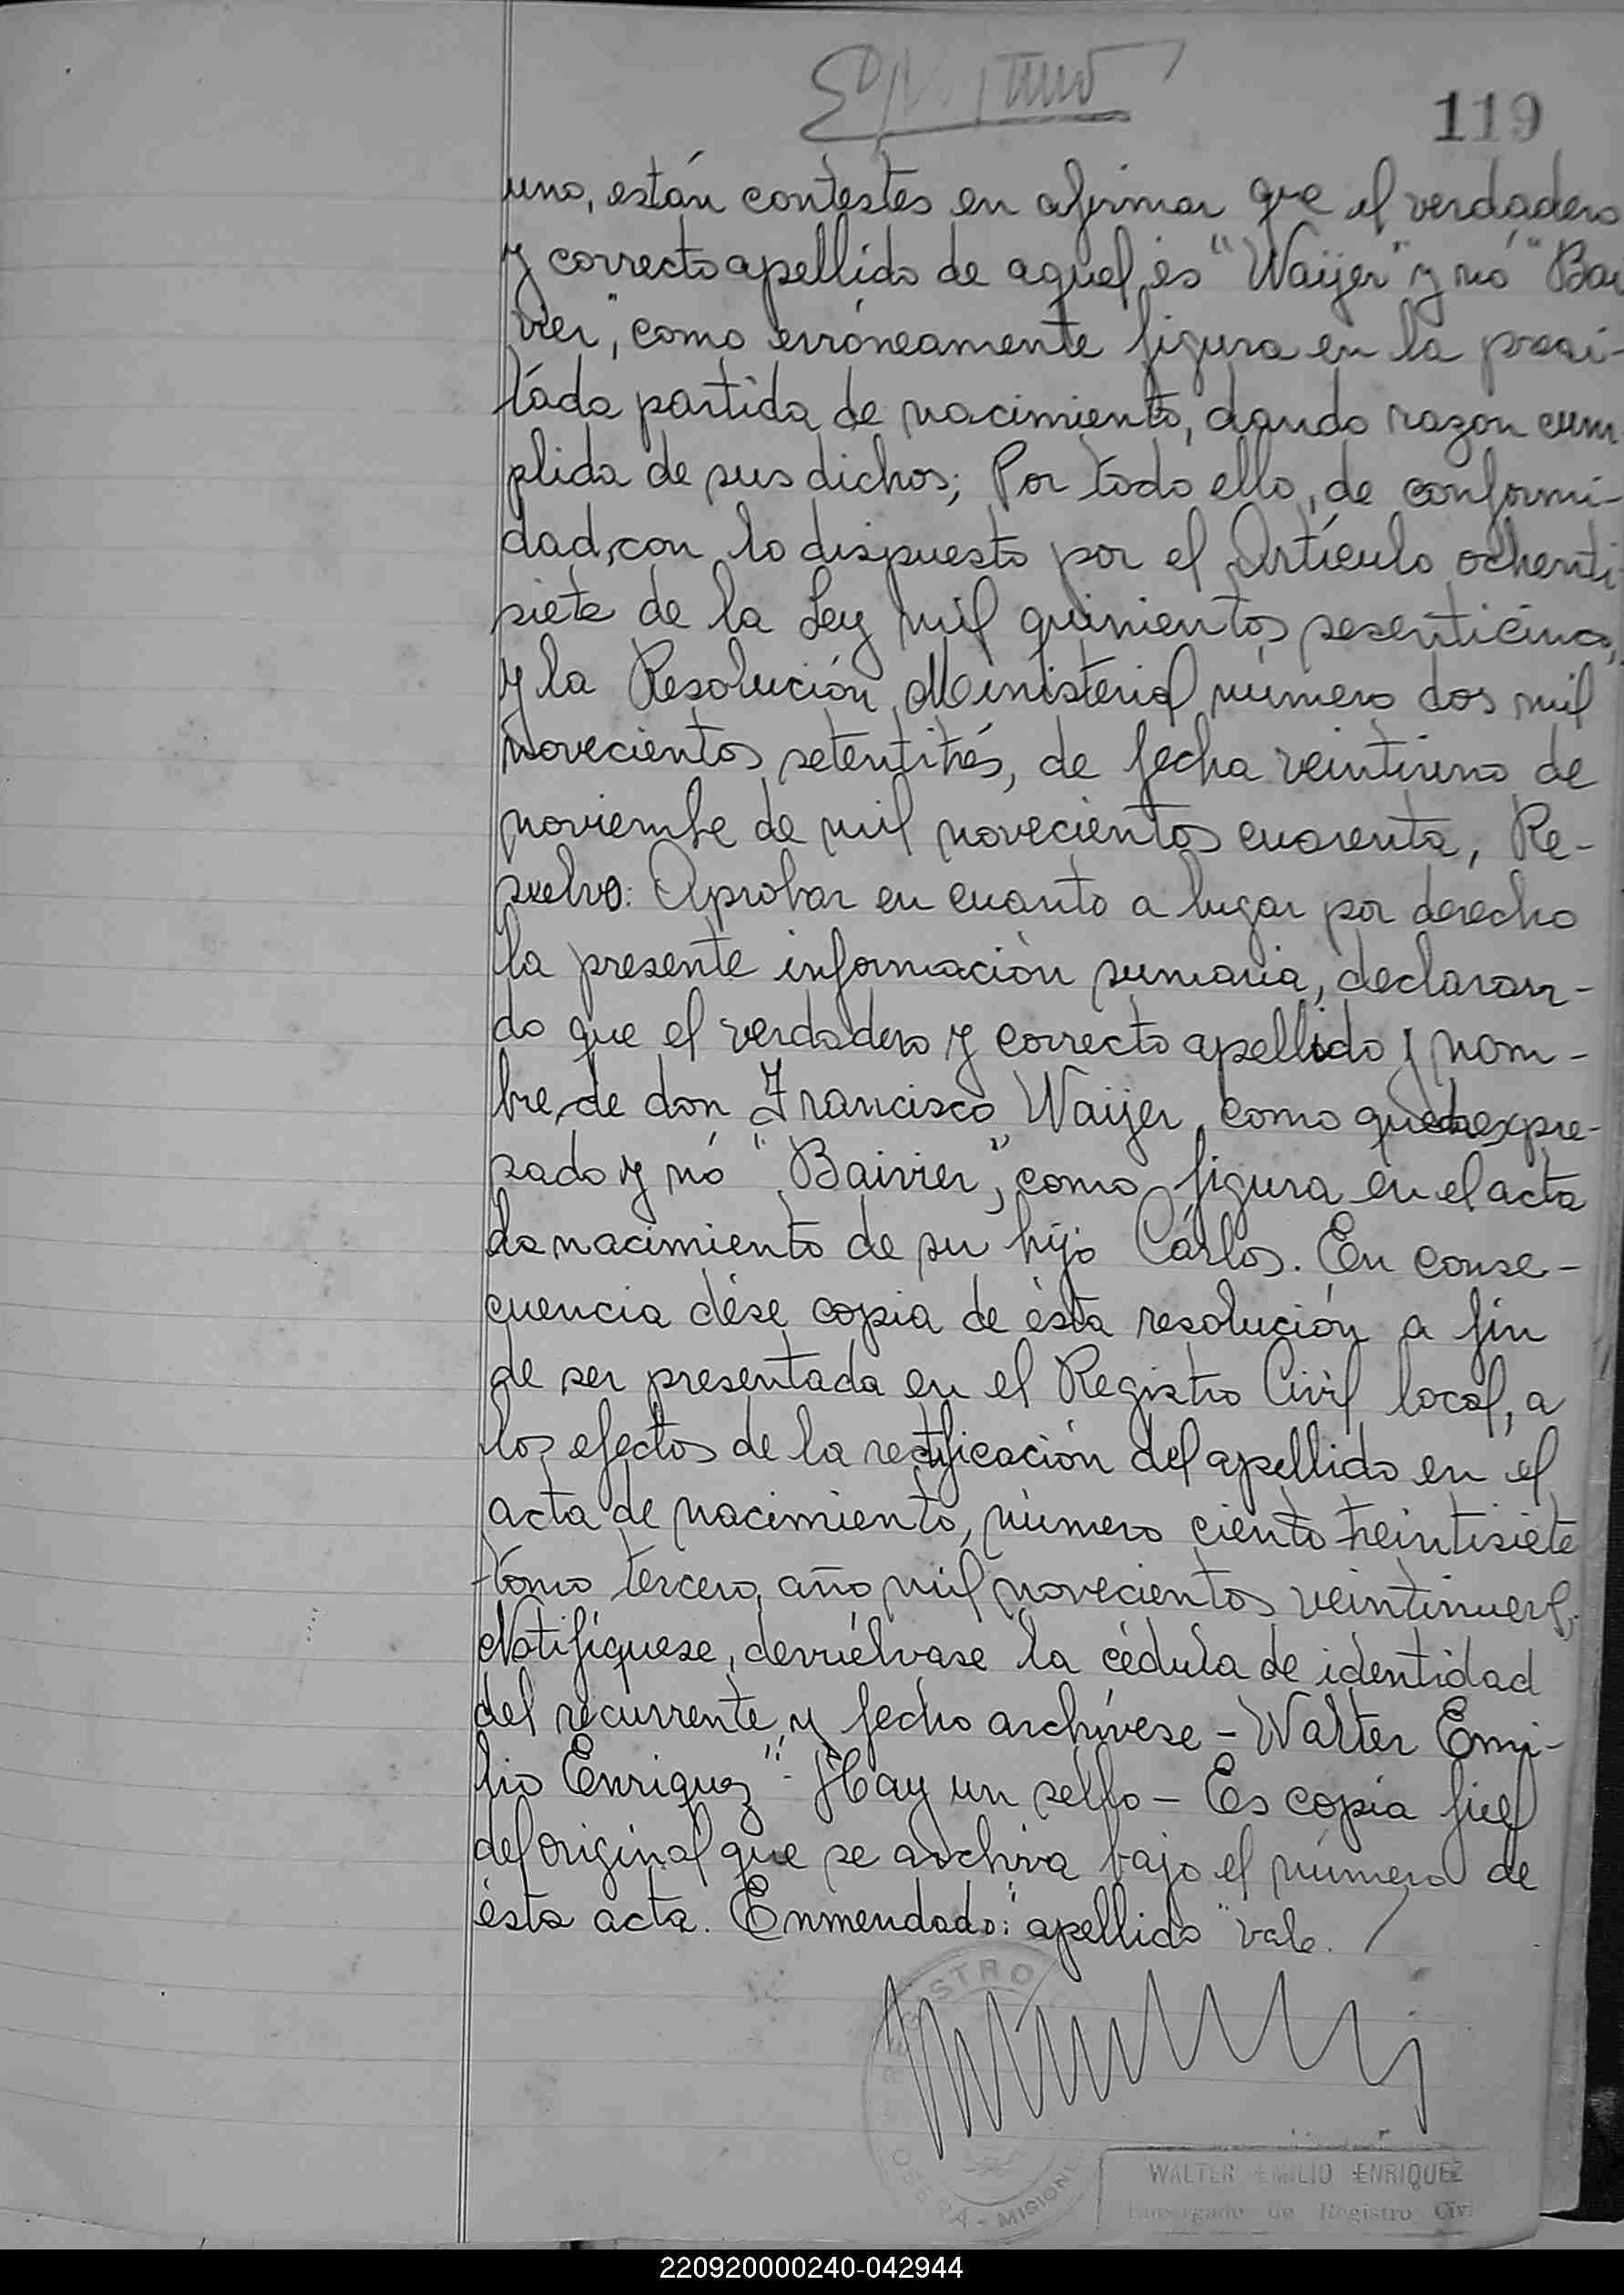 119
uno, están contestes en afirmar que el verdadero
y correcto apellido de aquel es "Waijer" y nó "Bai
vier", como erróneamente figura en la preci-
tada partida de nacimiento, dando razón cum
plida de sus dichos; Por todo ello, de conformi-
dad, con lo dispuesto por el Artículo ochenti
siete de la Ley mil quinientos sesenticinco,
y la Resolución Ministerial número dos mil
novecientos setentitrés, de fecha veintiuno de
noviembre de mil novecientos cuarenta, Re-
suelvo: Aprobar en cuanto a lugar por derecho
la presente información sumaria, declaran-
do que el verdadero y correcto apellido y nom-
bre, de don Francisco Waijer, como queda expre-
sado y nó "Baivier", como figura en el acta
de nacimiento de su hijo Cárlos. En conse-
cuencia dése copia de ésta resolución a fin
de ser presentada en el Registro Civil local, a
los efectos de la rectificación del apellido en el
acta de nacimiento, número ciento treintisiete
tomo tercero, año mil novecientos veintinueve,
Notifíquese, devuélvase la cédula de identidad
del recurrente y fecho archívese - Walter Emi-
lio Enriquez" - Hay un sello - Es copia fiel
del original que se archiva bajo el número de
ésta acta. Enmendado: "apellido" vale.
REGISTRO
OBERA - MISIONES
WALTER EMILIO ENRIQUEZ
Encargado de Registro Civil
220920000240-042944